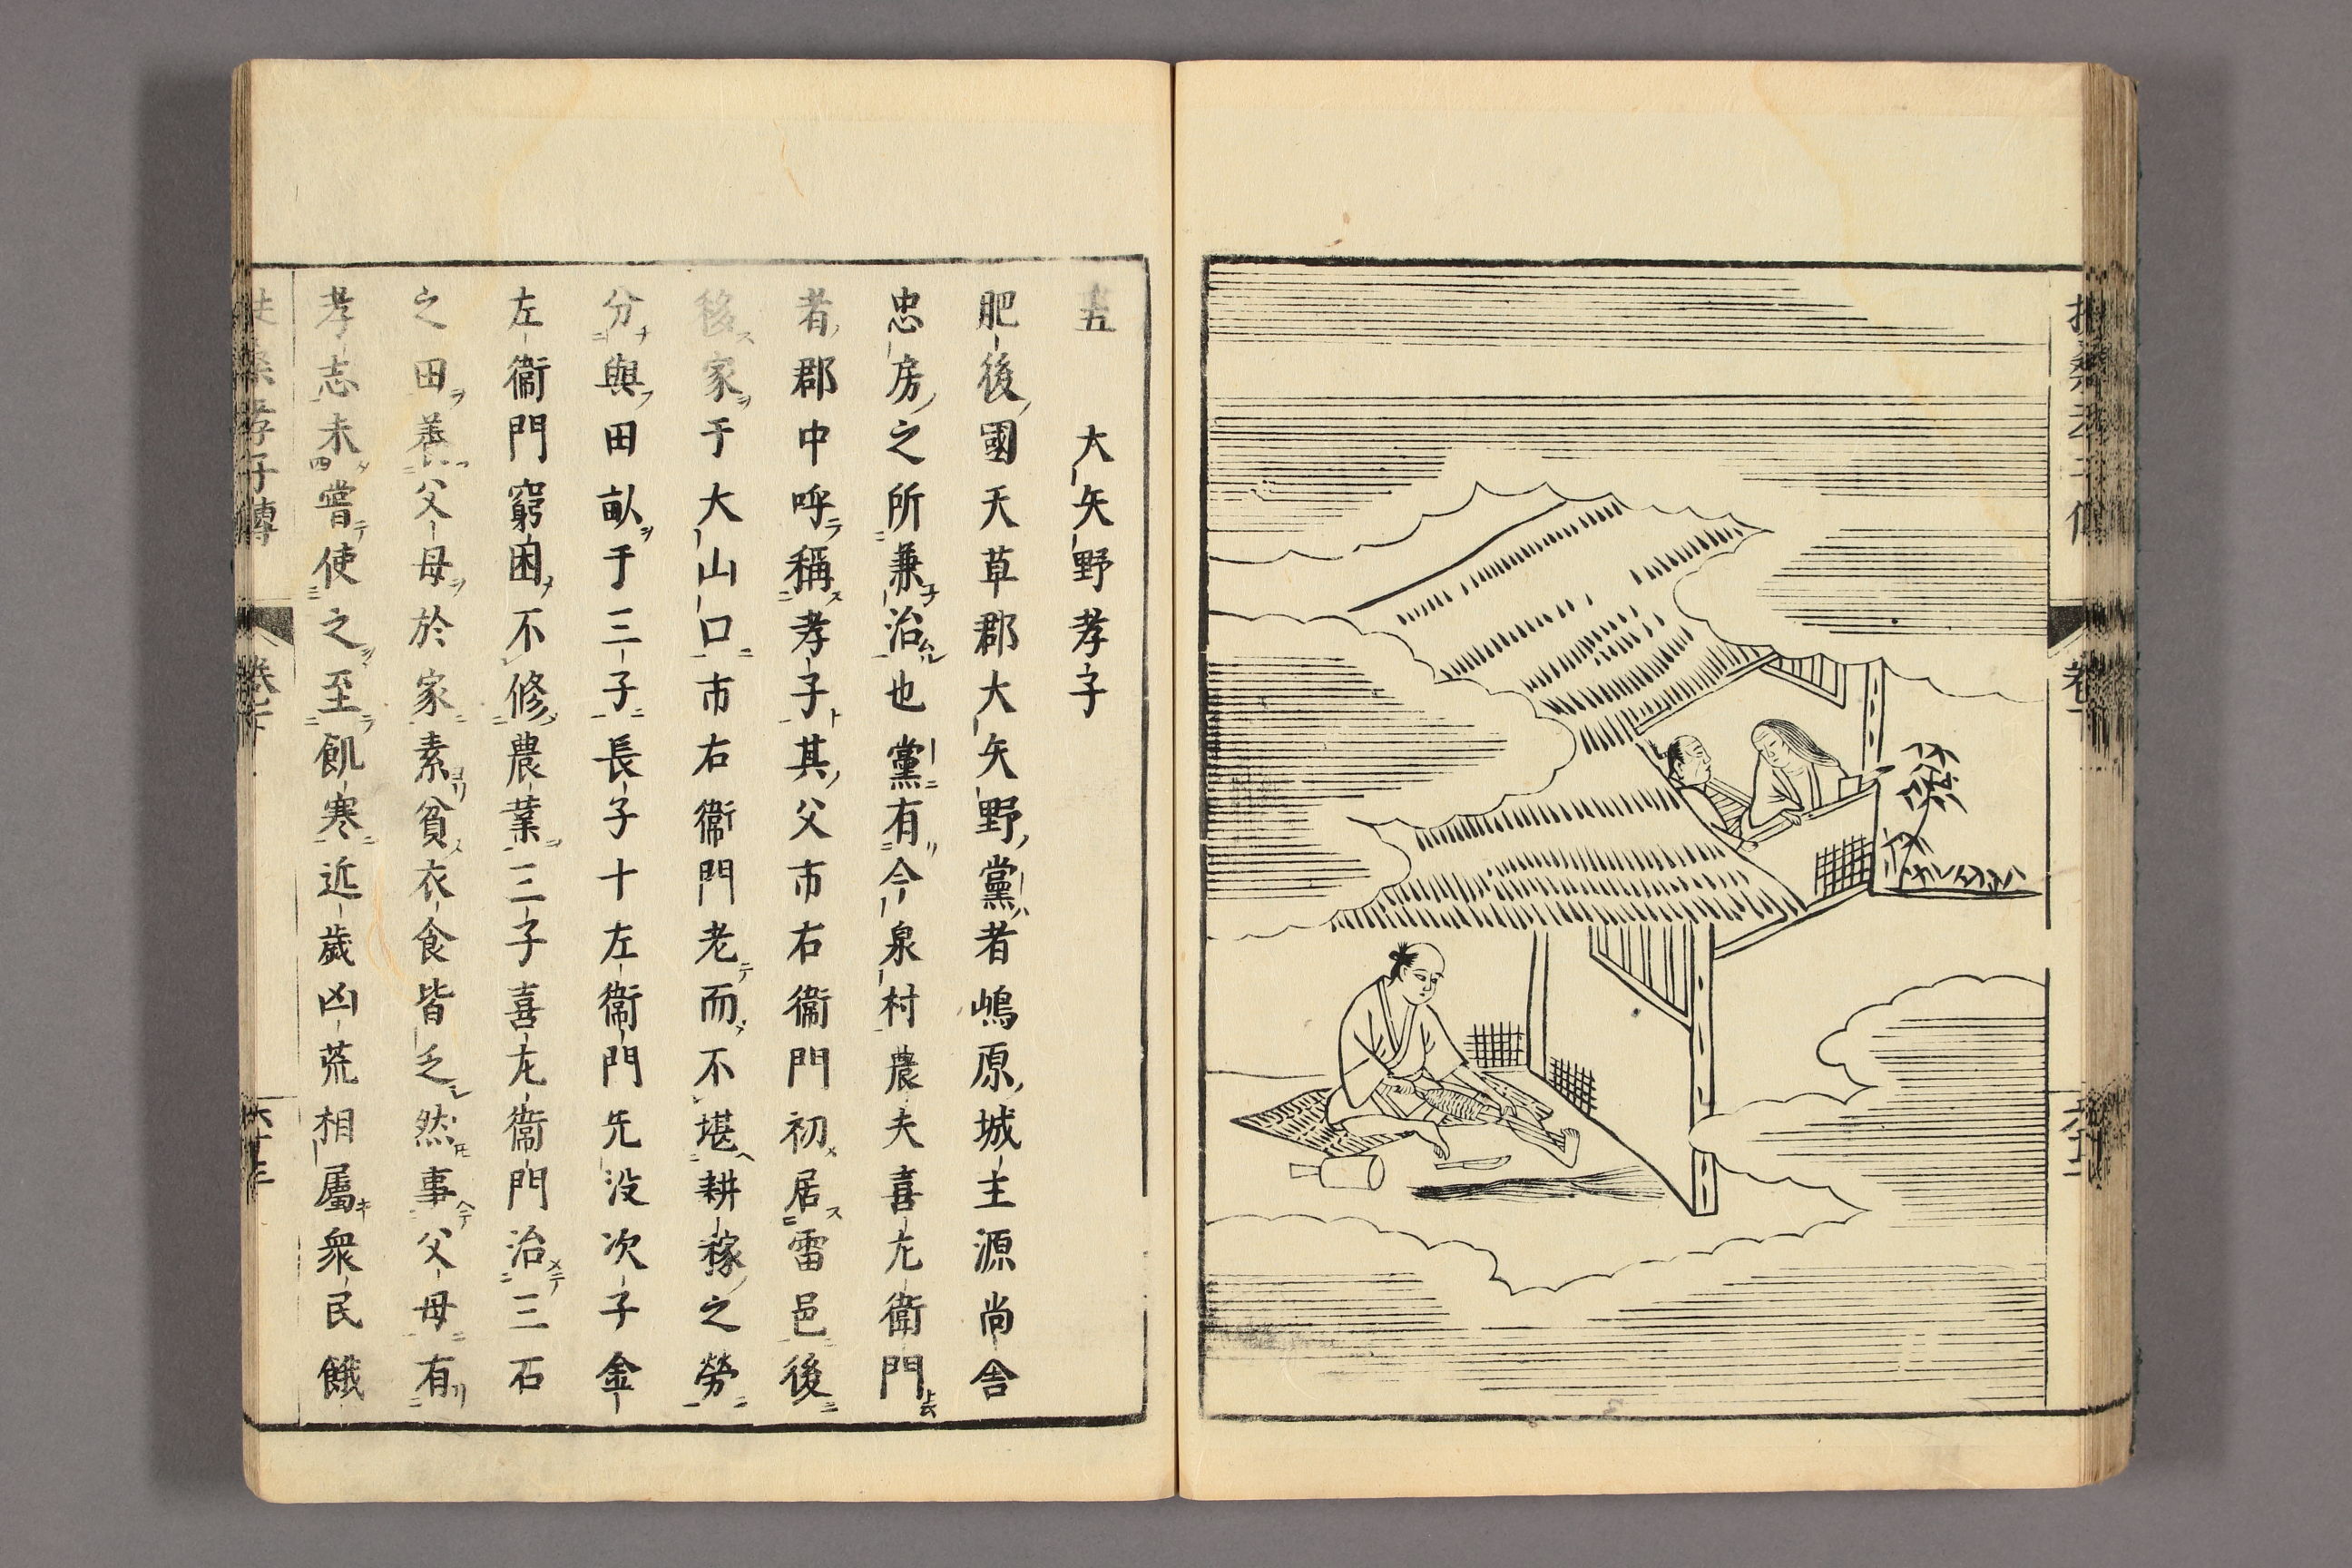 大矢野孝子
肥後國天草郡大矢野黨者嶋原城主源尚舎
忠房之所兼治也黨有今泉村農夫喜左衛門
者郡中呼稱孝子其父市右衛門初居雷邑後
移家于大山口市右衛門老而不堪耕稼之勞
分與田畝于三子長子十左衛門先没次子金
左衛門窮困不修農業三子喜左衛門治三石
之田養父母於家素貧衣食皆乏然事父母有
孝志未嘗使之至飢寒近歳凶荒相屬衆民餓